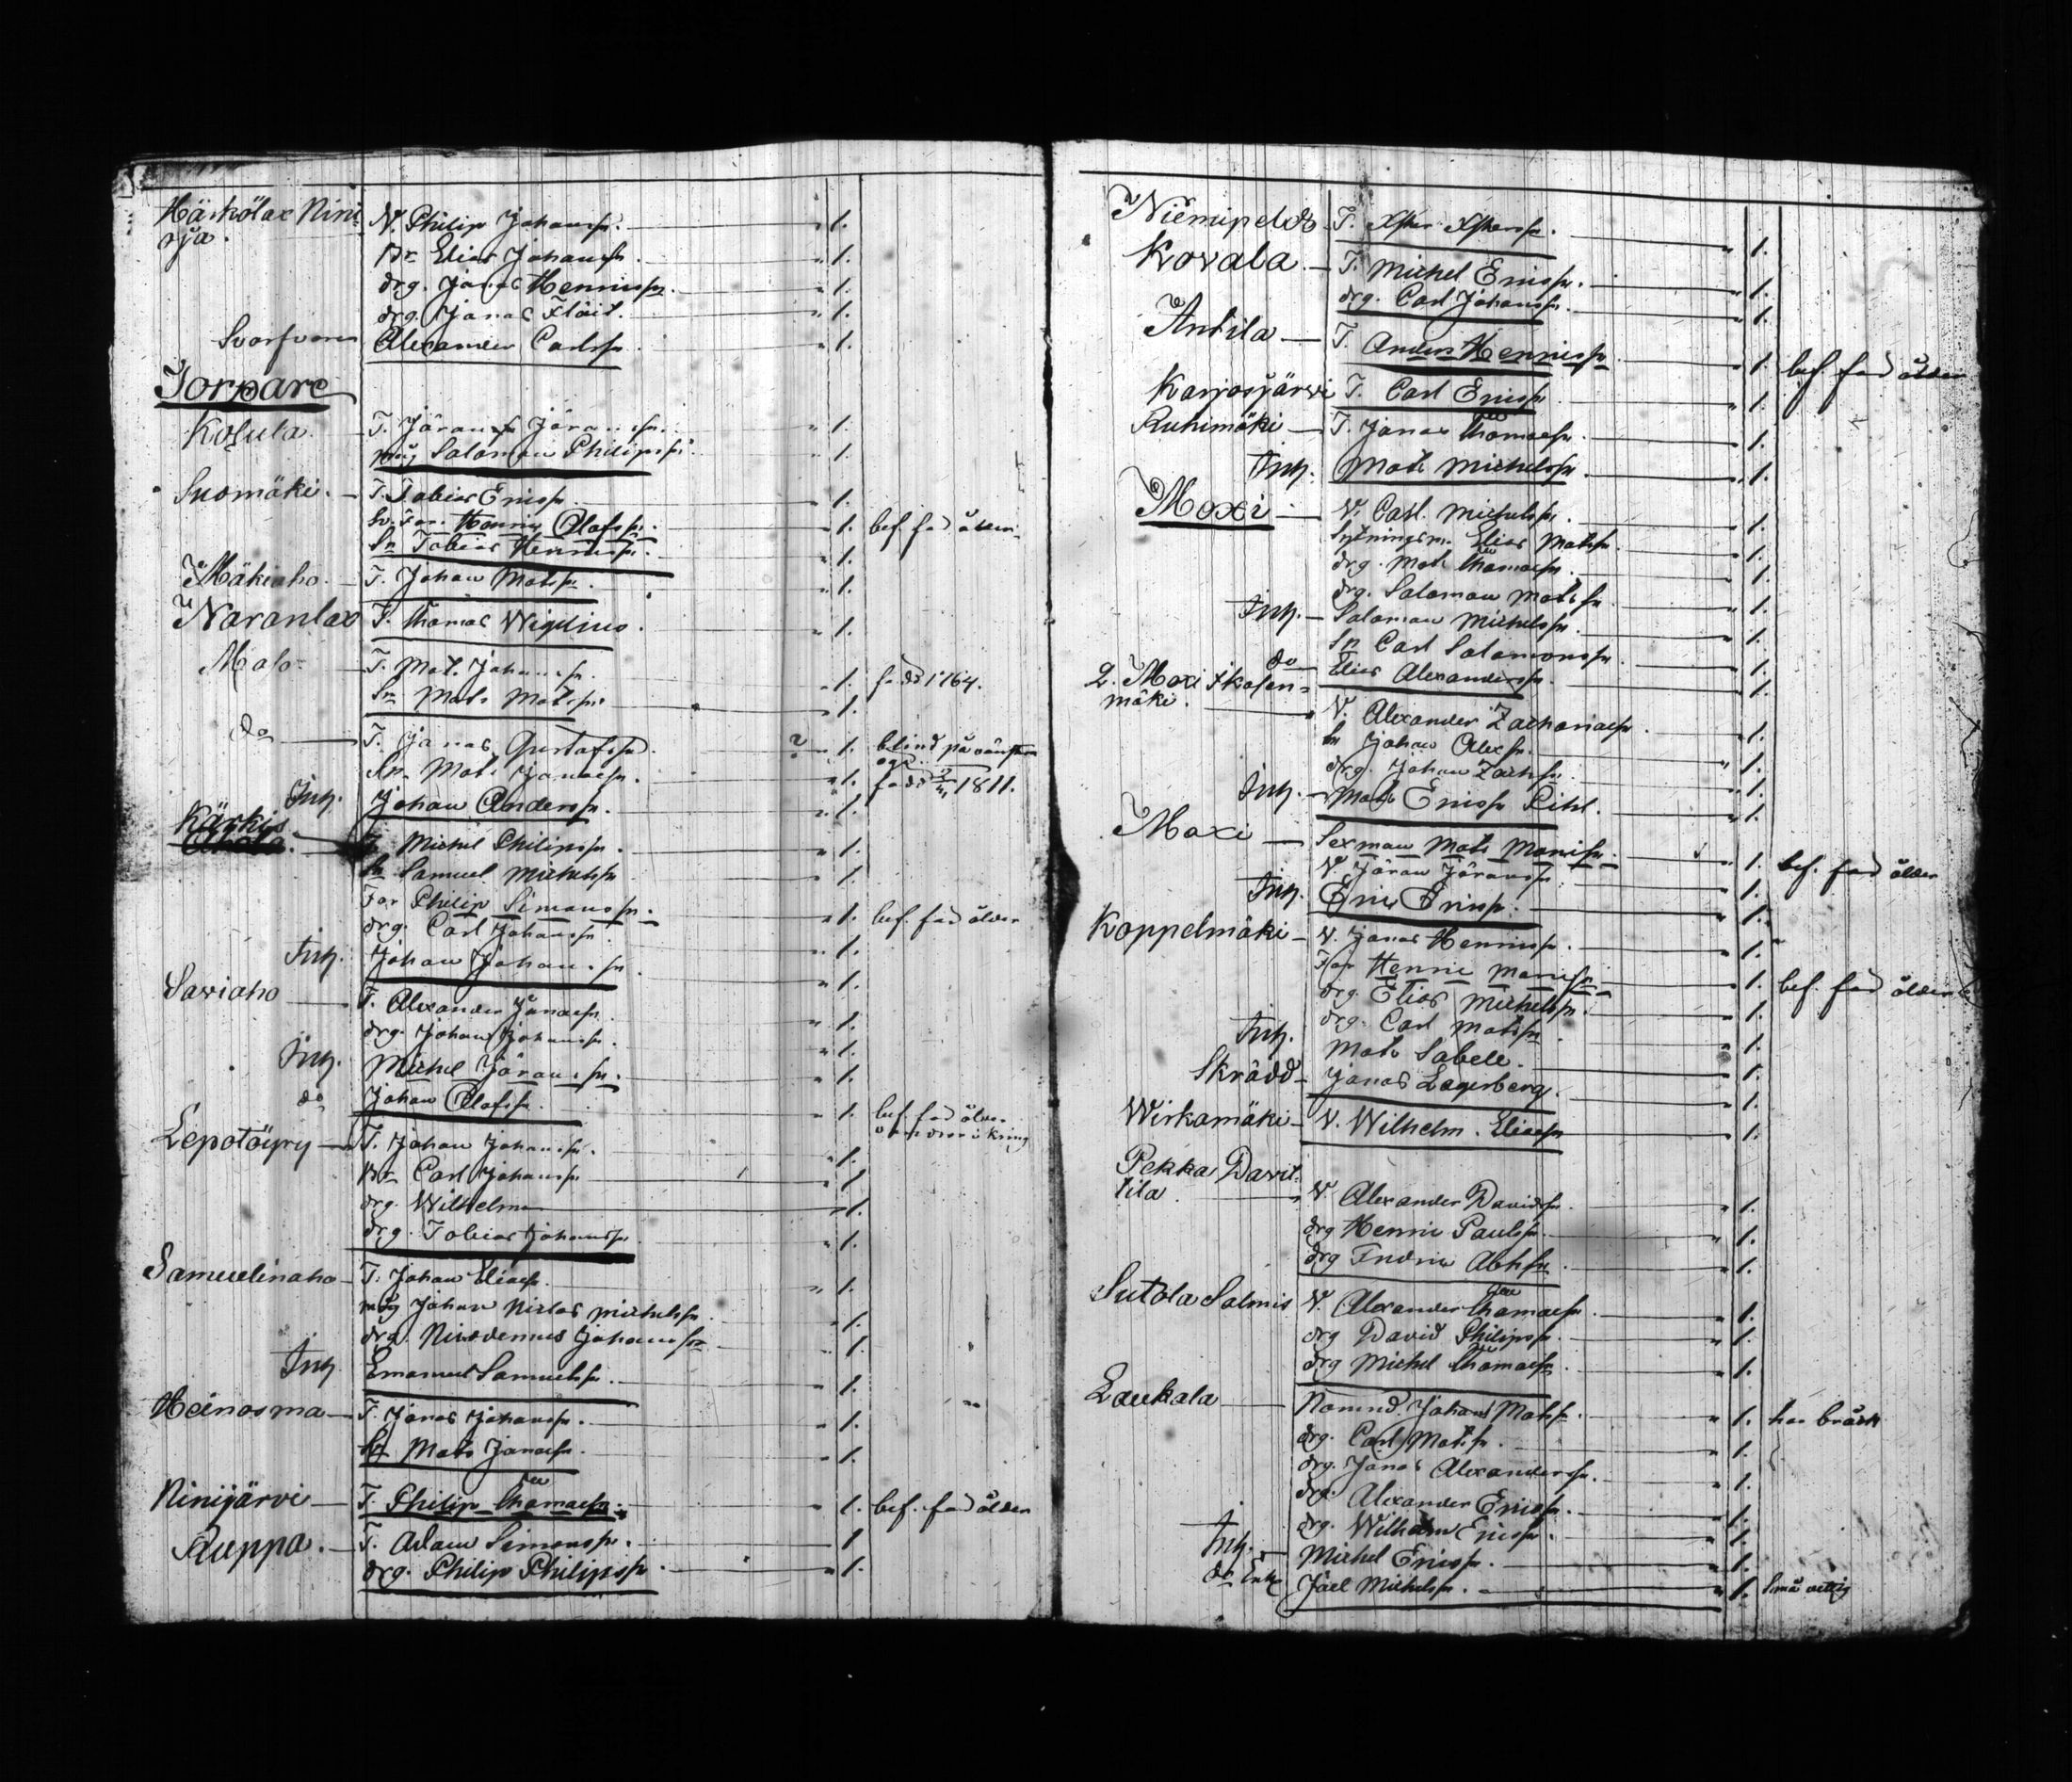 Härkölax Nini
rja. N. Philip Johanss. — " 1.
Br Elias Johanss. — " 1.
drg. Jonas Henricss. — " 1.
drg. Jonas Flöit. — " 1.
Svarfvaren Alexander Carlss. — " 1.
Torpare
Kosula. T. Jöran Jöranss. — " 1.
måg Salomon Philipss. — " 1.
Suomäki. — T. Tobias Ericss. — " 1.
Sv. Far. Henric Olofss. — " 1. bef. för ålder
Sn Tobias Henricss. — " 1.
Mäkiaho. — T. Johan Matss. — " 1.
Naranlax T. Thomas Wigelius. — " 1.
Maso — T. Mats Johanss. — " 1. född 1764.
Sn Mats Matss. — " 1.
do — T. Jonas Gustafss. — ? 1. blind på vänstra
Sn Mats Jonaess. — " 1. född 1811.
Inh. Johan Anderss. — " 1.
Kärkis
T. Michel Philipss. — " 1.
Sn Samuel Michelss. — " 1.
Far Philip Simonss. — " 1. bef. för ålder
drg. Carl Johanss. — " 1.
Inh. Johan Johanss. — " 1.
Saviaho — T. Alexander Jonaess. — " 1.
drg. Johan Johanss. — " 1.
Inh. Michel Jöranss. — " 1.
do Johan Olofss. — " 1. bef. för ålder
Lepotöyry — T. Johan Johanss. — " 1.
Br Carl Johanss. — " 1
drg. Wilhelm — " 1.
drg. Tobias Johanss. — " 1.
Samuelinaho — T. Johan Eliaess. — " 1.
måg Johan Niclas Michelss. — " 1.
drg. Nicodemus Johanss. — " 1.
Inh Emanuel Samuelss. — " 1.
Heinosma — T. Jonas Johanss. — " 1.
Sn Mats Jonaess. — " 1.
Ninijärvi — T. Philip Thomaess. — " 1. bef. för ålder
Ruppa. — T. Adam Simonss. — 1
drg. Philip Philipss. — " 1.
Niemipeldo T. — " 1.
Kovala — T. Michel Ericss. — " 1.
drg. Carl Johanss. — " 1.
Antila — T. Anders Henricss. — " 1. bef. för ålder
Karjosjärvi T. Carl Ericss. — " 1.
Ruhimäki — T. Jonas Thomaess. — " 1.
Inh. Mats Michelss. — " 1.
Moxi — N. Carl Michelss. — " 1.
Sytningsm. Elias Matss. — " 1.
drg. Mats Thomaess. — " 1.
drg. Salomon Matss. — " 1.
Inh. — Salomon Michelss. — " 1.
Sn Carl Salomonss. — " 1.
do Elias Alexanderss. — " 1.
2. Moxi Ikosen=
mäki. — N. Alexander Zachariaess. — " 1.
Sn Johan Alexss. — " 1.
drg. Johan Zachss. — " 1.
Inh. — Mats Ericss Pihl. — " 1.
Moxi — Sexman Mats Monss. — " 1. bef. för ålder
N. Jöran Jöranss. — " 1.
Inh. Eric Ericss. — " 1.
Koppelmäki — N. Jonas Henricss. — " 1.
Far Henric Monss. — " 1. bef. för ålder
drg. Elias Michelss. — " 1.
drg. Carl Matss. — " 1.
Inh. Mats Sabele. — " 1.
Skrädd — Jonas Lagerberg. — " 1.
Wirkamäki — N. Wilhelm Eliaess — " 1.
Pekka Davit=
tila — N. Alexander Davidss. — " 1.
drg Henric Paulss. — " 1.
drg Fredric Abrss. — " 1.
Sutola Salmis N. Alexander Thomaess. — " 1.
drg David Philipss. — " 1.
drg Michel Thomaess. — " 1.
Laukala — Nämnd. Johan Matss. — " 1. har bråck
drg. Carl Matss. — " 1.
drg. Jonas Alexanderss. — " 1.
drg. Alexander Ericss. — " 1.
drg. Wilhelm Ericss. — " 1.
Inh. — Michel Ericss. — " 1.
do Enk. Joel Michelss. — " 1.